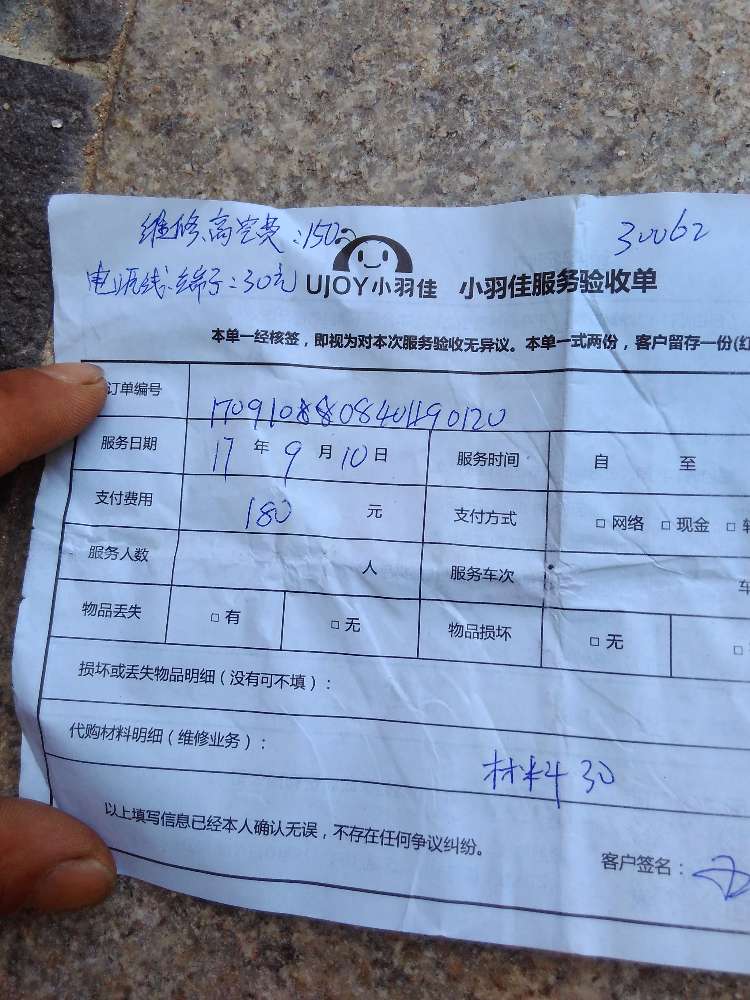 维修、高空费：150
30062
电源线、端子：30元
UJOY小羽佳 小羽佳服务验收单
本单一经核签，即视为对本次服务验收无异议。本单一式两份，客户留存一份(红
订单编号
服务日期 17年9月10日 服务时间 自 至
支付费用 180 元 支付方式 □网络 □现金 □
服务人数 人 服务车次 车
物品丢失 □有 □无 物品损坏 □无 □
损坏或丢失物品明细（没有可不填）：
代购材料明细（维修业务）：
材料30
以上填写信息已经本人确认无误，不存在任何争议纠纷。
客户签名：